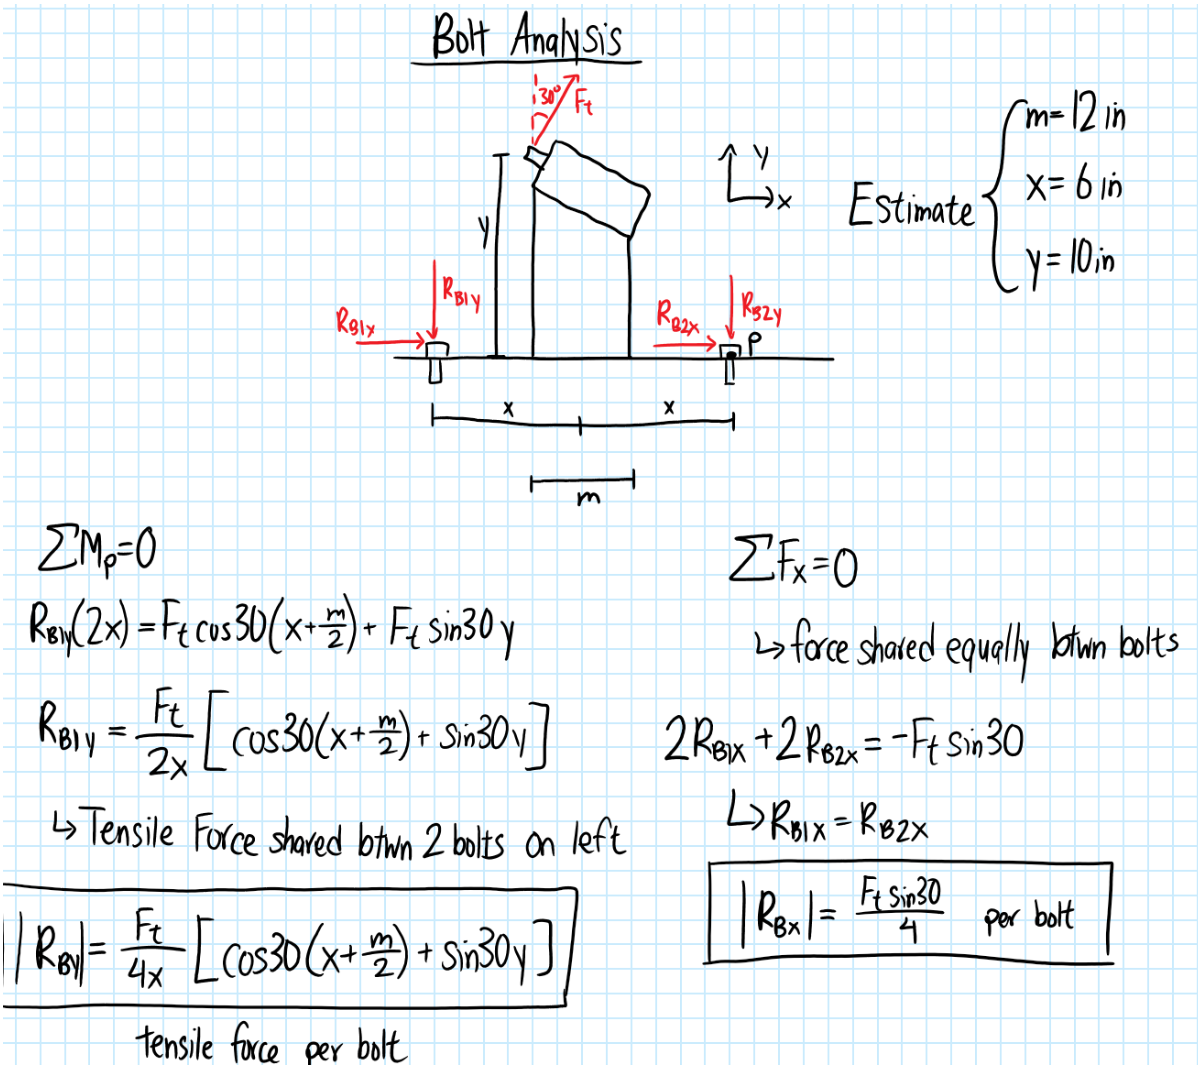 Bolt Analysis
30°
Ft
y
Y
x
Estimate
m=12 in
x=6 in
y=10in
RB1y
RB1x
RB2x
RB2y
P
x
x
m
ΣMp=0
RB1y(2x) = Ft cos30(x+m/2) + Ft sin30 y
RB1y = Ft/2x [cos30(x+m/2) + sin30y]
↳ Tensile Force shared btwn 2 bolts on left
|RBy| = Ft/4x [cos30(x+m/2) + sin30y]
tensile force per bolt
ΣFx=0
↳ force shared equally btwn bolts
2RB1x + 2RB2x = -Ft sin30
↳ RB1x = RB2x
|RBx| = Ft sin30/4 per bolt